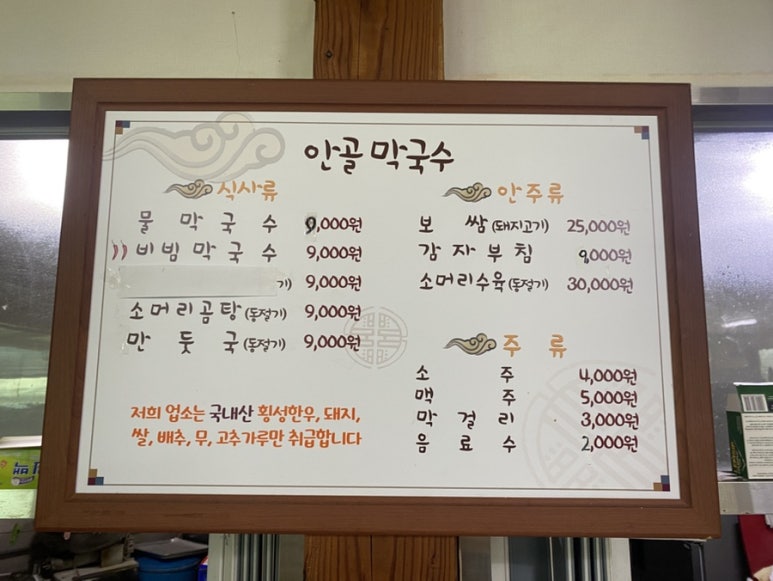 안골 막국수
식사류
물 막 국 수 9,000원
비빔막국수 9,000원
기) 9,000원
소머리곰탕(동절기) 9,000원
만 둣 국(동절기) 9,000원
저희 업소는 국내산 횡성한우, 돼지,
쌀, 배추, 무, 고추가루만 취급합니다
안주류
보 쌈(돼지고기) 25,000원
감자부침 9,000원
소머리수육(동절기) 30,000원
주 류
소 주 4,000원
맥 주 5,000원
막 걸 리 3,000원
음 료 수 2,000원